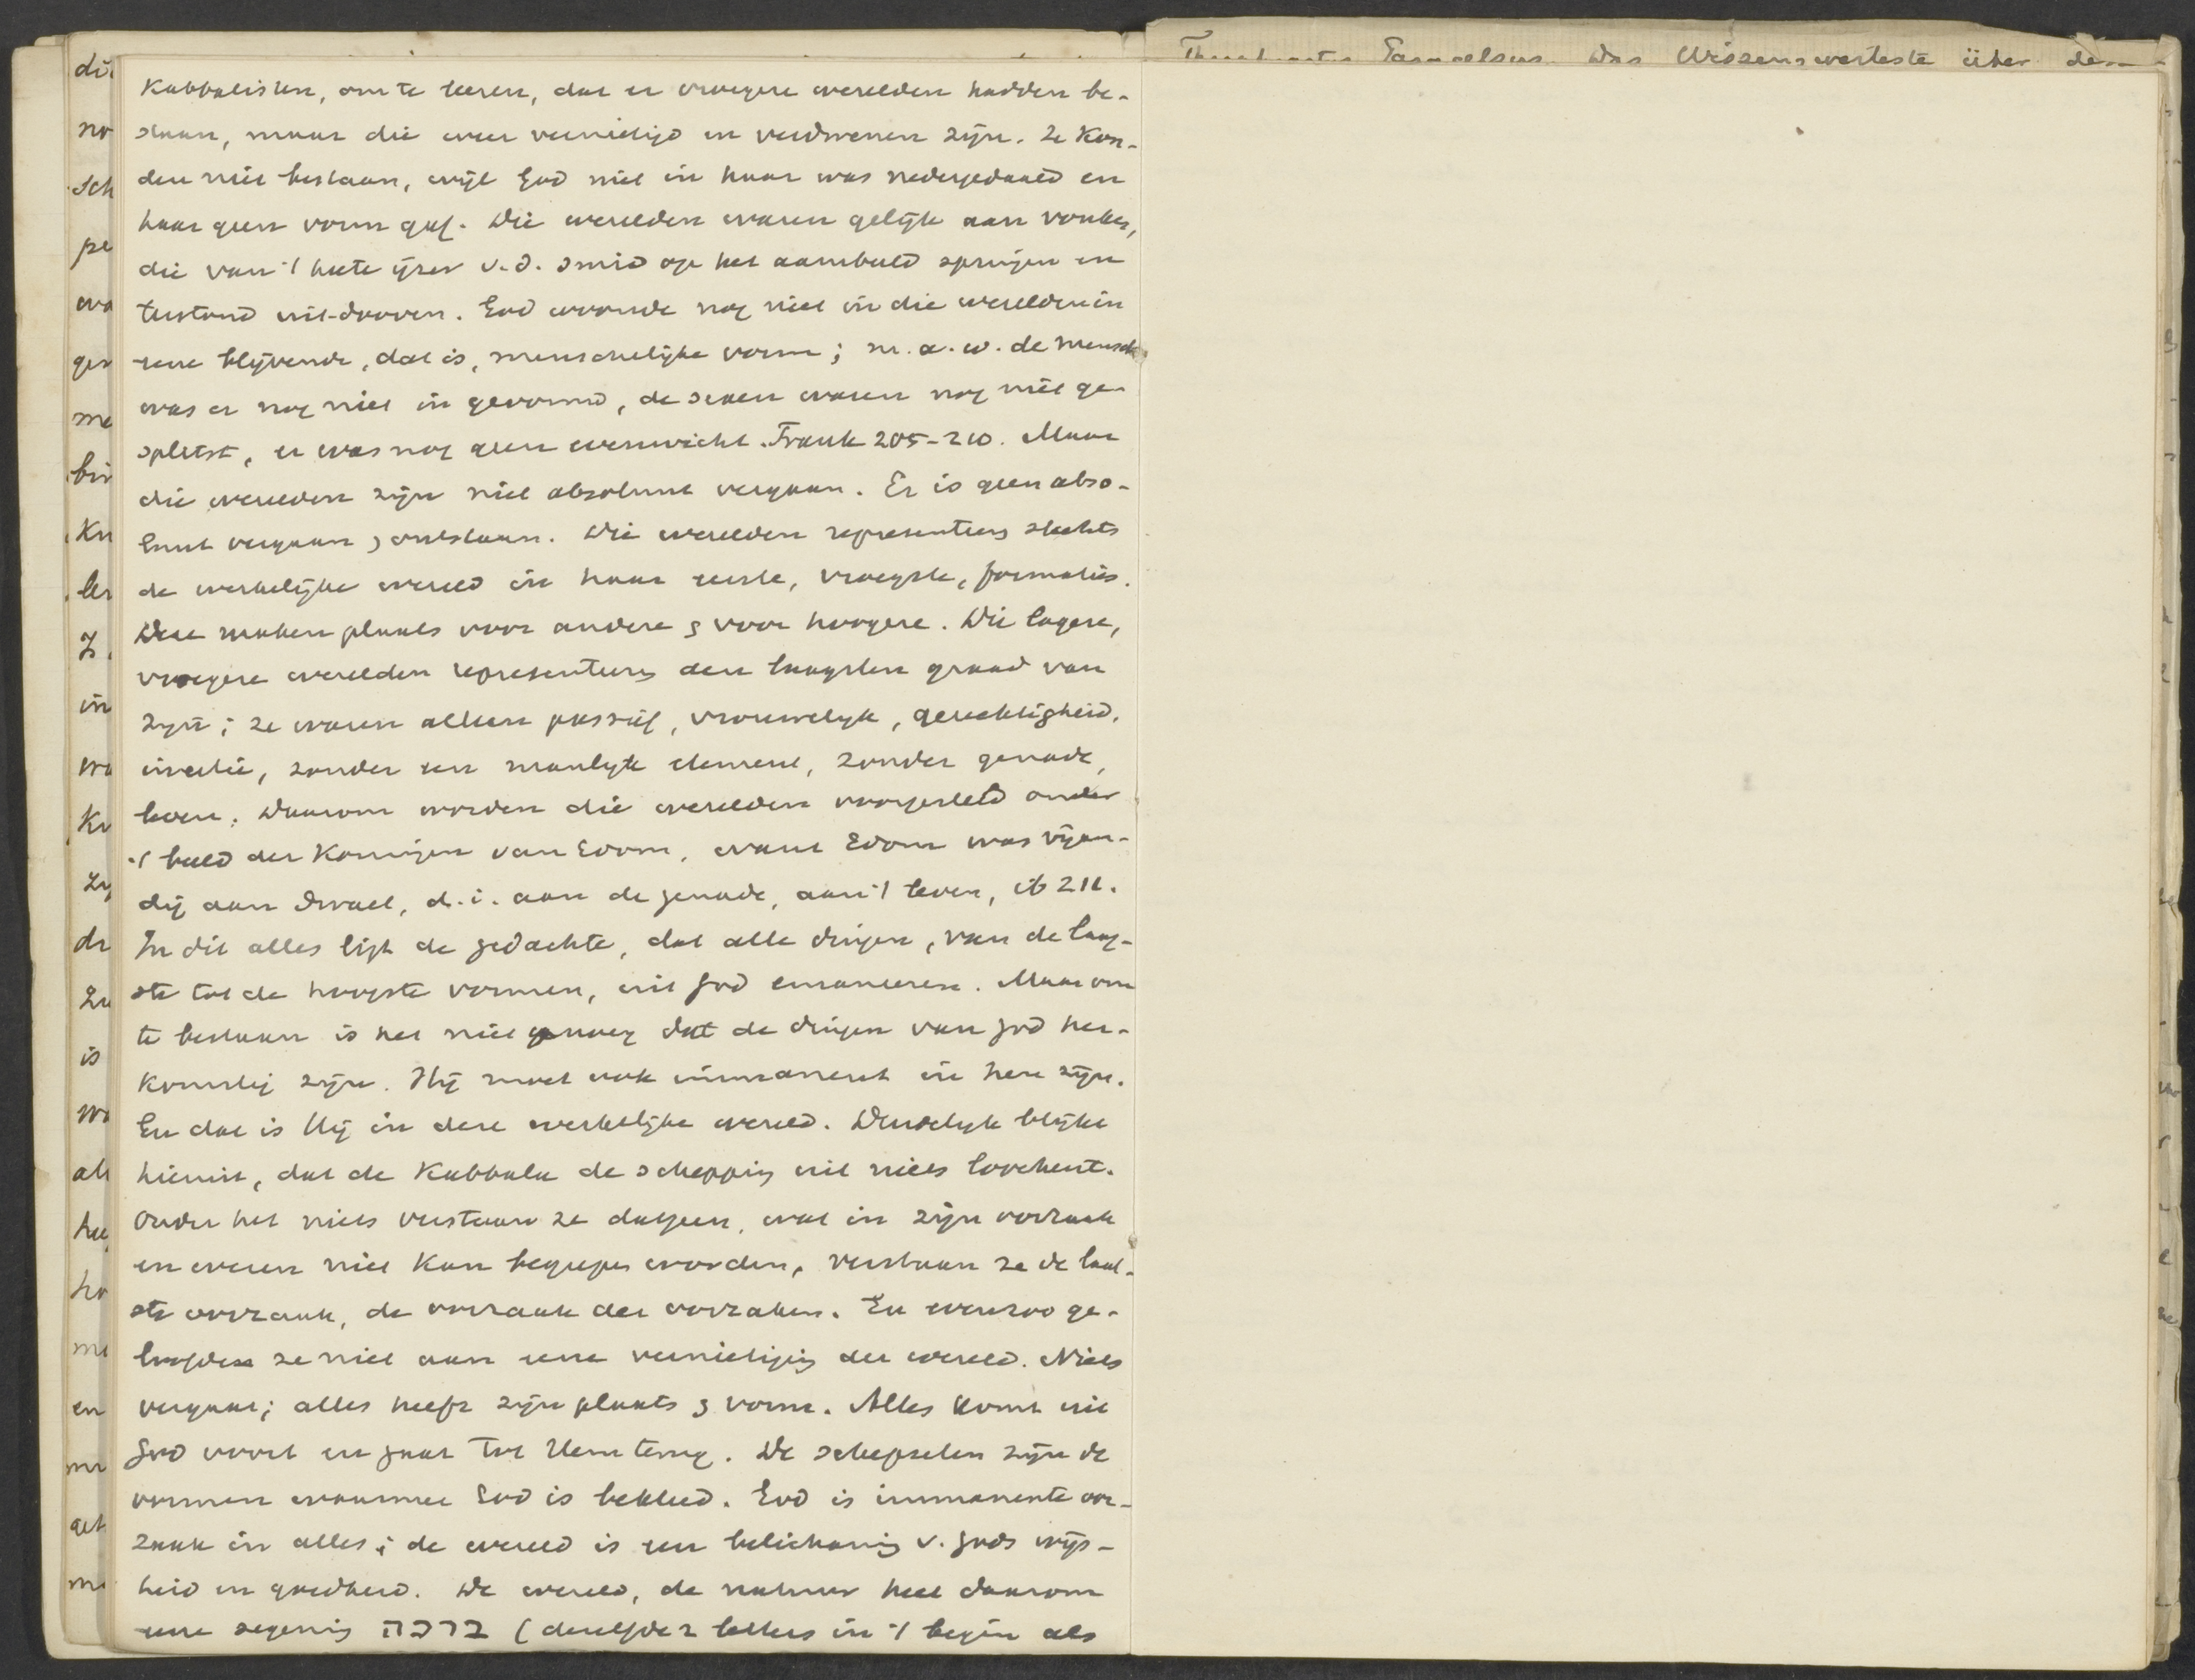 Kabbalisten, om te leeren, dat er vroegere werelden hadden be-
staan, maar die weer vernietigd en verdwenen zijn. Ze kon-
den niet bestaan, wijl God niet in haar was nedergedaald en
haar geen vorm gaf. Die werelden waren gelijk aan vonken,
die van 't heete ijzer v. d. smid op het aambeeld springen en
terstond uit-dooven. God woonde nog niet in die werelden in
eene blijvende, dat is, menschelijke vorm; m. a. w. de mensch
was er nog niet in gevormd, de sexen waren nog niet ge-
splitst, er was nog geen evenwicht. Frank 205-210. Maar
die werelden zijn niet absoluut vergaan. Er is geen abso-
luut vergaan, ontstaan. Die werelden representeeren slechts
de werkelijke wereld in haar eerste, vroegste, formaties.
Deze maken plaats voor andere & voor hoogere. Die lagere,
vroegere werelden representeeren den laagsten graad van
zijn; ze waren alleen passief, vrouwelijk, gerechtigheid,
inertie, zonder een manlijk element, zonder genade,
leven. Daarom worden die werelden voorgesteld onder
't beeld der Koningen van Edom, want Edom was vijan-
dig aan Israel, d. i. aan de genade, aan 't leven, ib 211.
In dit alles ligt de gedachte, dat alle dingen, van de laag-
ste tot de hoogste vormen, uit God emaneeren. Maar om
te bestaan is het niet genoeg dat de dingen van God her-
komstig zijn. Hij moet ook immanent in hen zijn.
En dat is Hij in deze werkelijke wereld. Duidelijk blijkt
hieruit, dat de Kabbala de schepping uit niets loochent.
Onder het niets verstaan ze datgeen, wat in zijn oorzaak
en wezen niet kan begrepen worden, verstaan ze de laat-
ste oorzaak, de oorzaak der oorzaken. En evenzoo ge-
loofden ze niet aan eene vernietiging der wereld. Niets
vergaat; alles heeft zijn plaats & vorm. Alles komt uit
God voort en gaat tot Hem terug. De schepselen zijn de
vormen waarmee God is bekleed. God is immanente oor-
zaak in alles; de wereld is een belichaming v. Gods wijs-
heid en goedheid. De wereld, de natuur heet daarom
eene zegening ברכה (dezelfde 2 letters in 't begin als
Das Wissenswerteste über den